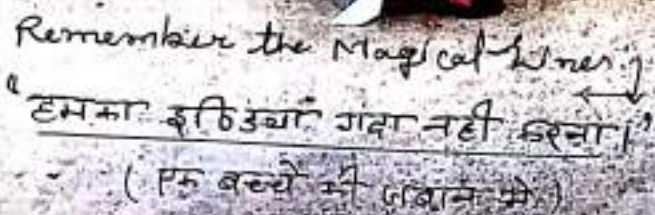 Remember the Magical Lines.
"हमका इण्डिया गंदा नही करना।"
(एक बच्चे की जबान से)